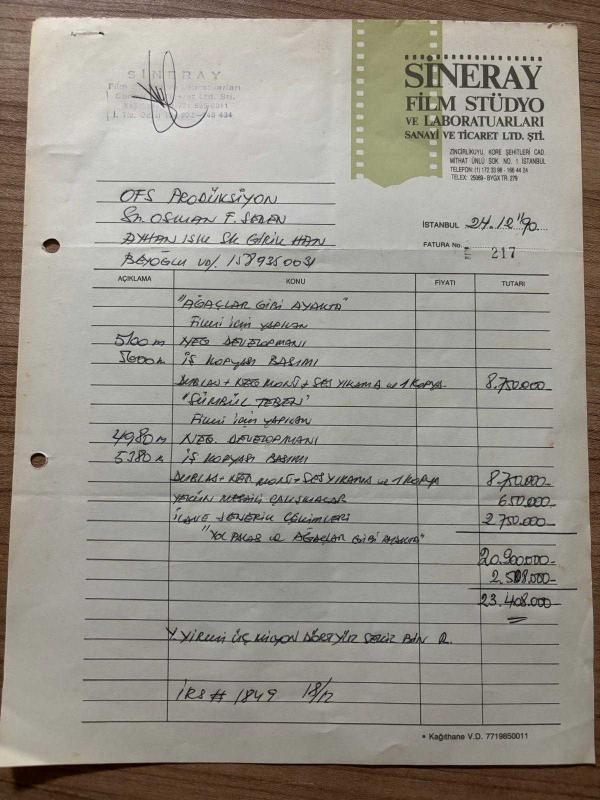 SİNERAY
SİNERAY
FİLM STÜDYO
VE LABORATUARLARI
SANAYİ VE TİCARET LTD. ŞTİ.
ZİNCİRLİKUYU, KORE ŞEHİTLERİ CAD.
MİTHAT ÜNLÜ SOK. NO. 1 İSTANBUL
TELEFON: (1) 172 33 98 - 166 44 24
TELEX: 25069 - BYGX TR. 279
OFS PRODÜKSİYON
Sn. OSMAN F. SEDEN
AYHAN IŞIK SK. GİRİK HAN
BEYOĞLU VD/. 1589350031
İSTANBUL 24.12.1990
FATURA No. 217
AÇIKLAMA KONU FİYATI TUTARI
"AĞAÇLAR GİBİ AYAKTA"
Filmi için yapılan
5100 m NEG. DEVELOPMANI
5600 m İŞ KOPYASI BASIMI
DUBLAJ + NEG MONT + SES YIKAMA ve 1 KOPYA 8.750.000-
"SÜMBÜL TEBER"
Filmi için yapılan
4980 m NEG. DEVELOPMANI
5380 m İŞ KOPYASI BASIMI
DUBLAJ + NEG MONT + SES YIKAMA ve 1 KOPYA 8.750.000-
ÇALIŞMALAR 650.000-
İLAVE JENERİK ÇEKİMLERİ 2.750.000-
"YOL PALAS ve AĞAÇLAR GİBİ AYAKTA"
20.900.000-
2.508.000-
23.408.000-
Y. YİRMİ ÜÇ MİLYON DÖRTYÜZ SEKİZ BİN
İRS # 1849 18/12
• Kağıthane V.D. 7719850011